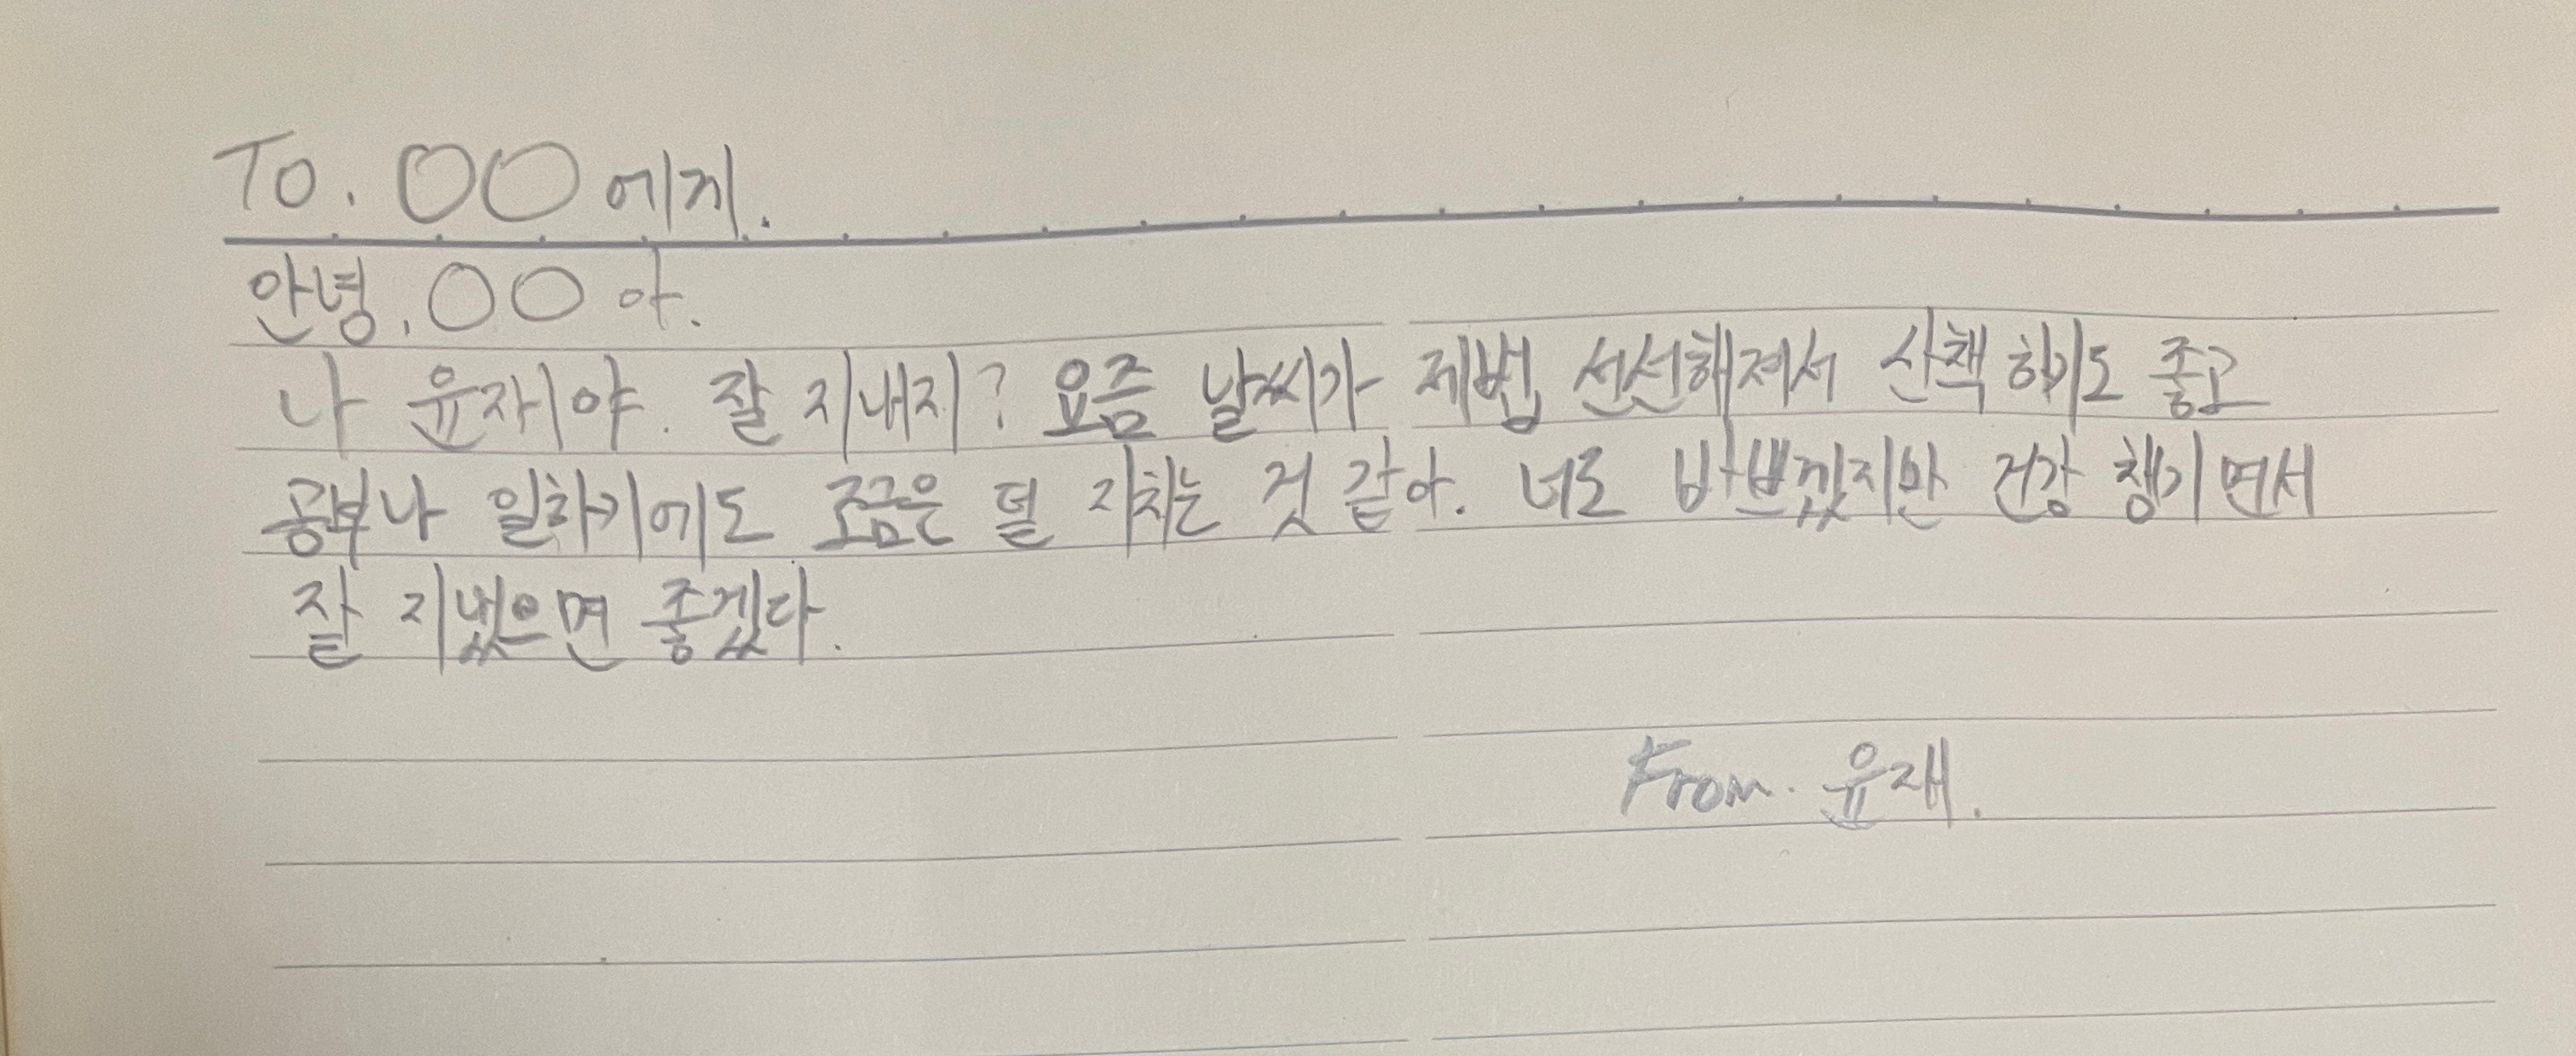 To. OO에게.
안녕, OO아.
나 윤재야. 잘 지내지? 요즘 날씨가 제법 선선해져서 산책 하기도 좋고
공부나 일하기에도 조금은 덜 지치는 것 같아. 너도 바쁘겠지만 건강 챙기면서
잘 지냈으면 좋겠다.
From. 윤재.